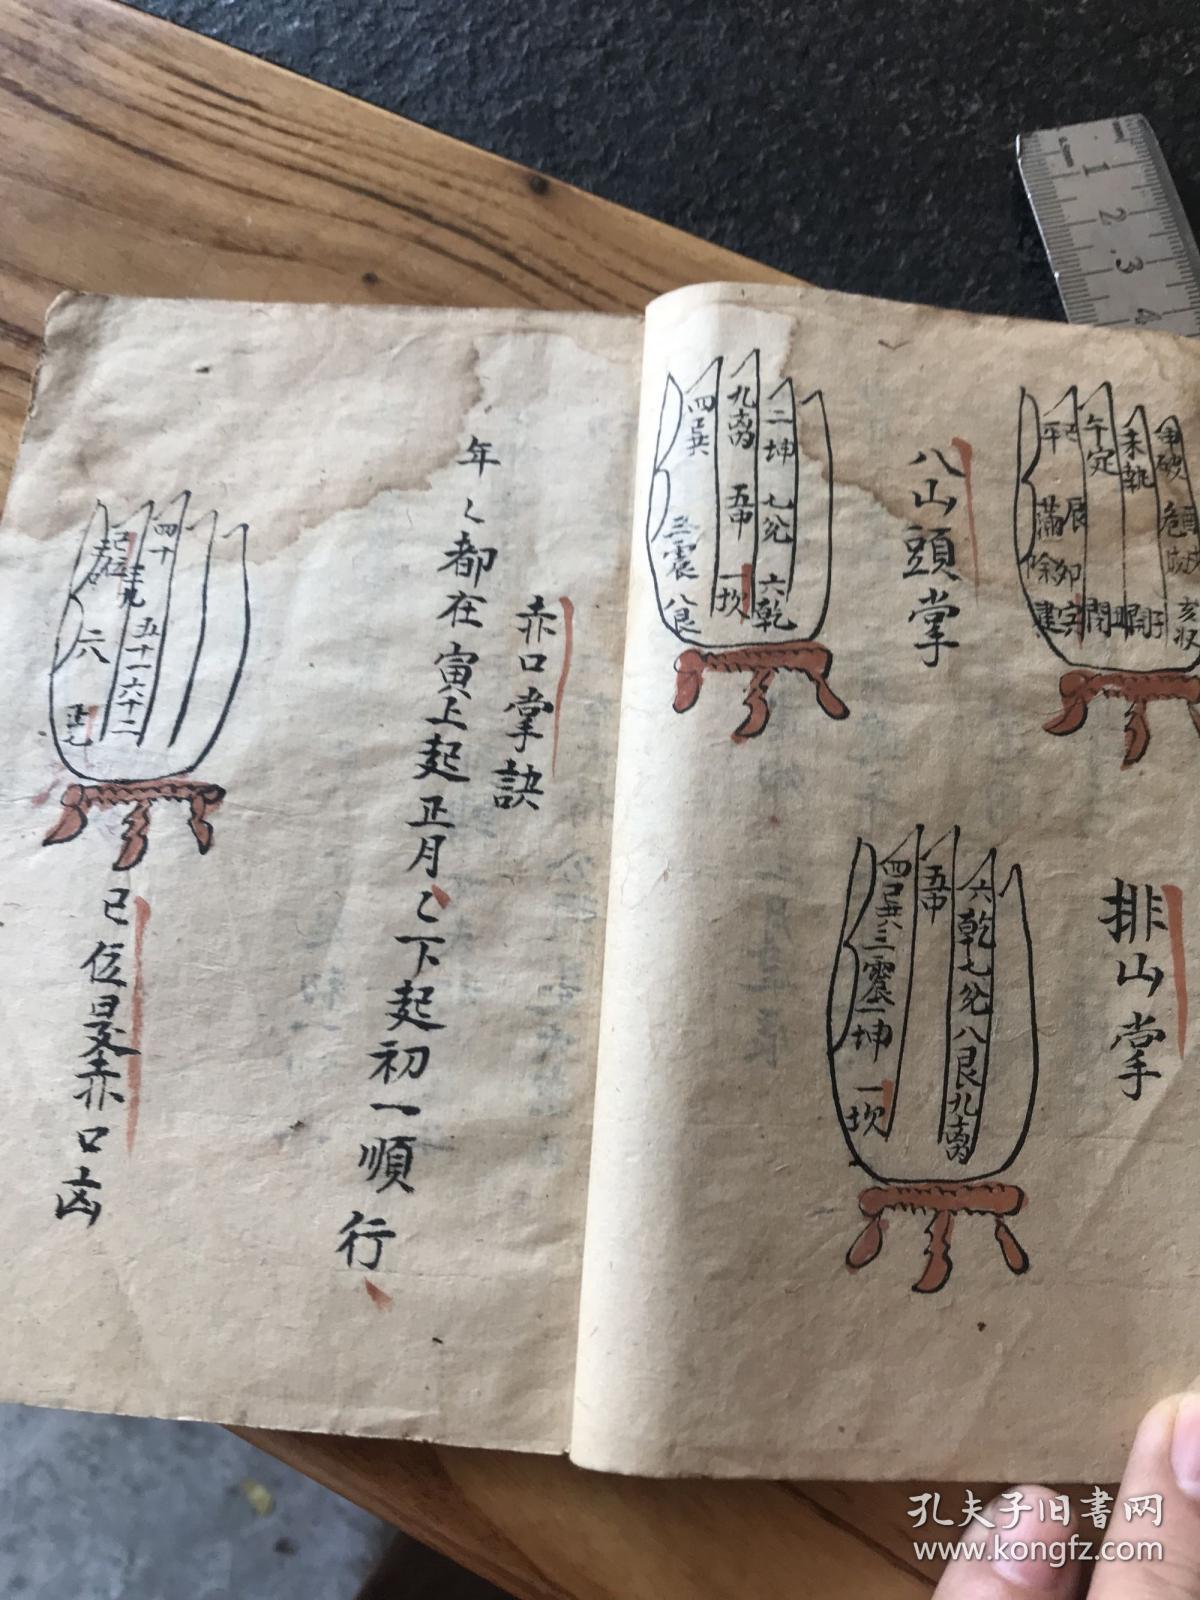 午定
未執
申破
平
辰
滿
除卯
建
八山頭掌
二坤 七兌 六乾
九離 五中 一坎
四巽
三震 八艮
排山掌
六乾七兌八艮九離
五中
四巽三震二坤 一坎
赤口掌訣
年〻都在寅上起正月〻下起初一順行
四十
三九
五十一六十二
六
巳位是赤口凶
1
2
3
4
孔夫子旧书网
www.kongfz.com